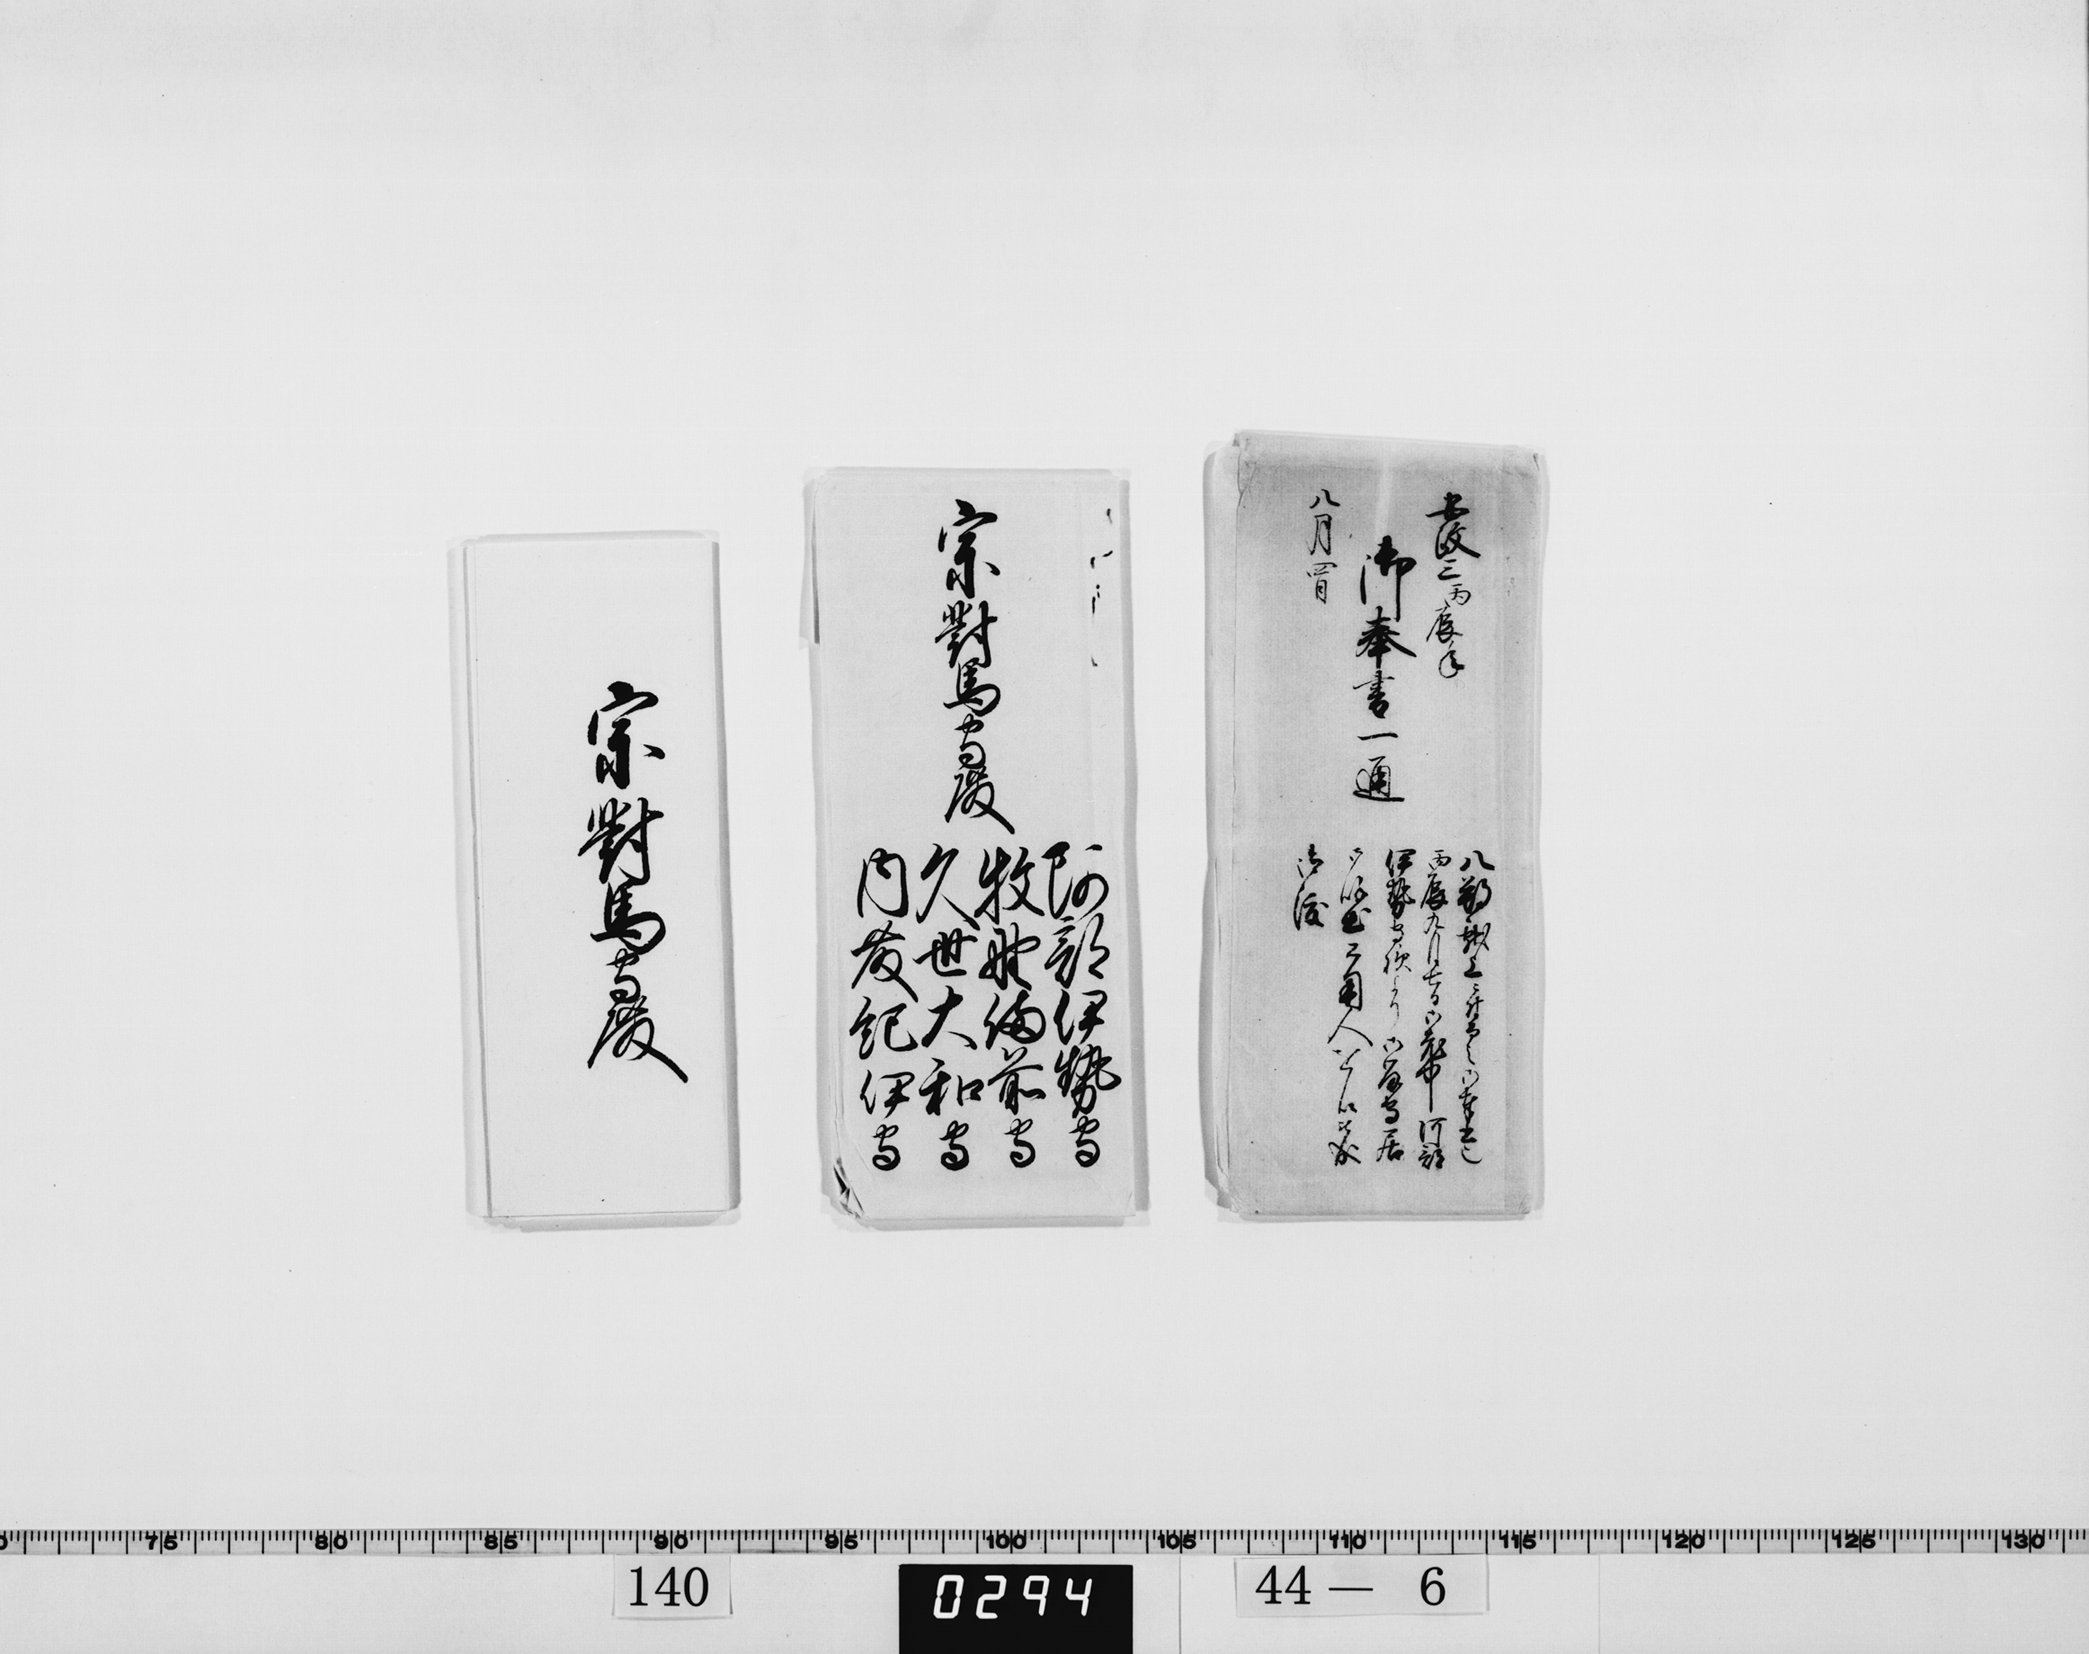 安政三丙辰年
御奉書一通
八月四日
丙辰九月七日御城中阿部
伊勢守様より御留守居
宗對馬守殿
阿部伊勢守
牧野備前守
久世大和守
内藤紀伊守
宗對馬守殿
75 80 85 90 95 100 105 110 115 120 125 130
140
0294
44－ 6